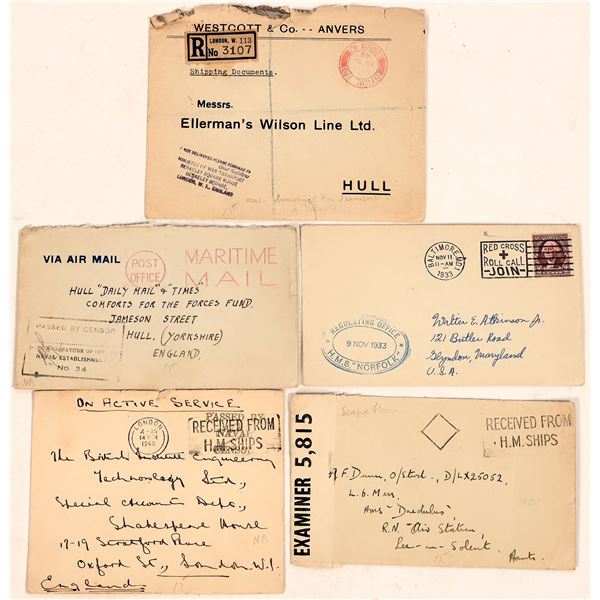 WESTCOTT & Co. -- ANVERS
R LONDON, W. 113
No 3107
Shipping Documents.
Messrs.
Ellerman's Wilson Line Ltd.
HULL
NOT DELIVERED PLEASE FORWARD
MINISTRY OF WAR TRANSPORT
BERKELEY SQUARE HOUSE
BERKELEY SQUARE,
LONDON, W. 1., ENGLAND
VIA AIR MAIL
POST
OFFICE
MARITIME
MAIL
HULL "DAILY MAIL" & "TIMES"
COMFORTS FOR THE FORCES FUND.
JAMESON STREET
HULL. (YORKSHIRE)
ENGLAND.
PASSED BY CENSOR
SIGNATURE OF
NAVAL ESTABLISHMENT
No. 34
NB
15
BALTIMORE, MD.
NOV 11
11-AM
1933
RED CROSS
+
ROLL CALL
-JOIN-
REGULATING OFFICE
9 NOV 1933
H.M.S. "NORFOLK"
Walter E. Atkinson Jr.
121 Butler Road
Glyndon, Maryland
U.S.A.
ON ACTIVE SERVICE
LONDON
1940
PASSED BY
NAVAL
CENSOR
RECEIVED FROM
H.M. SHIPS
The British Institute Engineering
Technology Ltd.,
Special Accounts Dept.,
Shakespeare House
17-19 Stratford Place
Oxford St., London. W.1.
England
NB
EXAMINER 5,815
Scapa Flow
RECEIVED FROM
H.M. SHIPS
F. Dunn, O/Stwd., D/LX25052,
L.6. Mess
Hms "Daedulus"
R.N. Air Station,
Lee-on-Solent,
Hants.